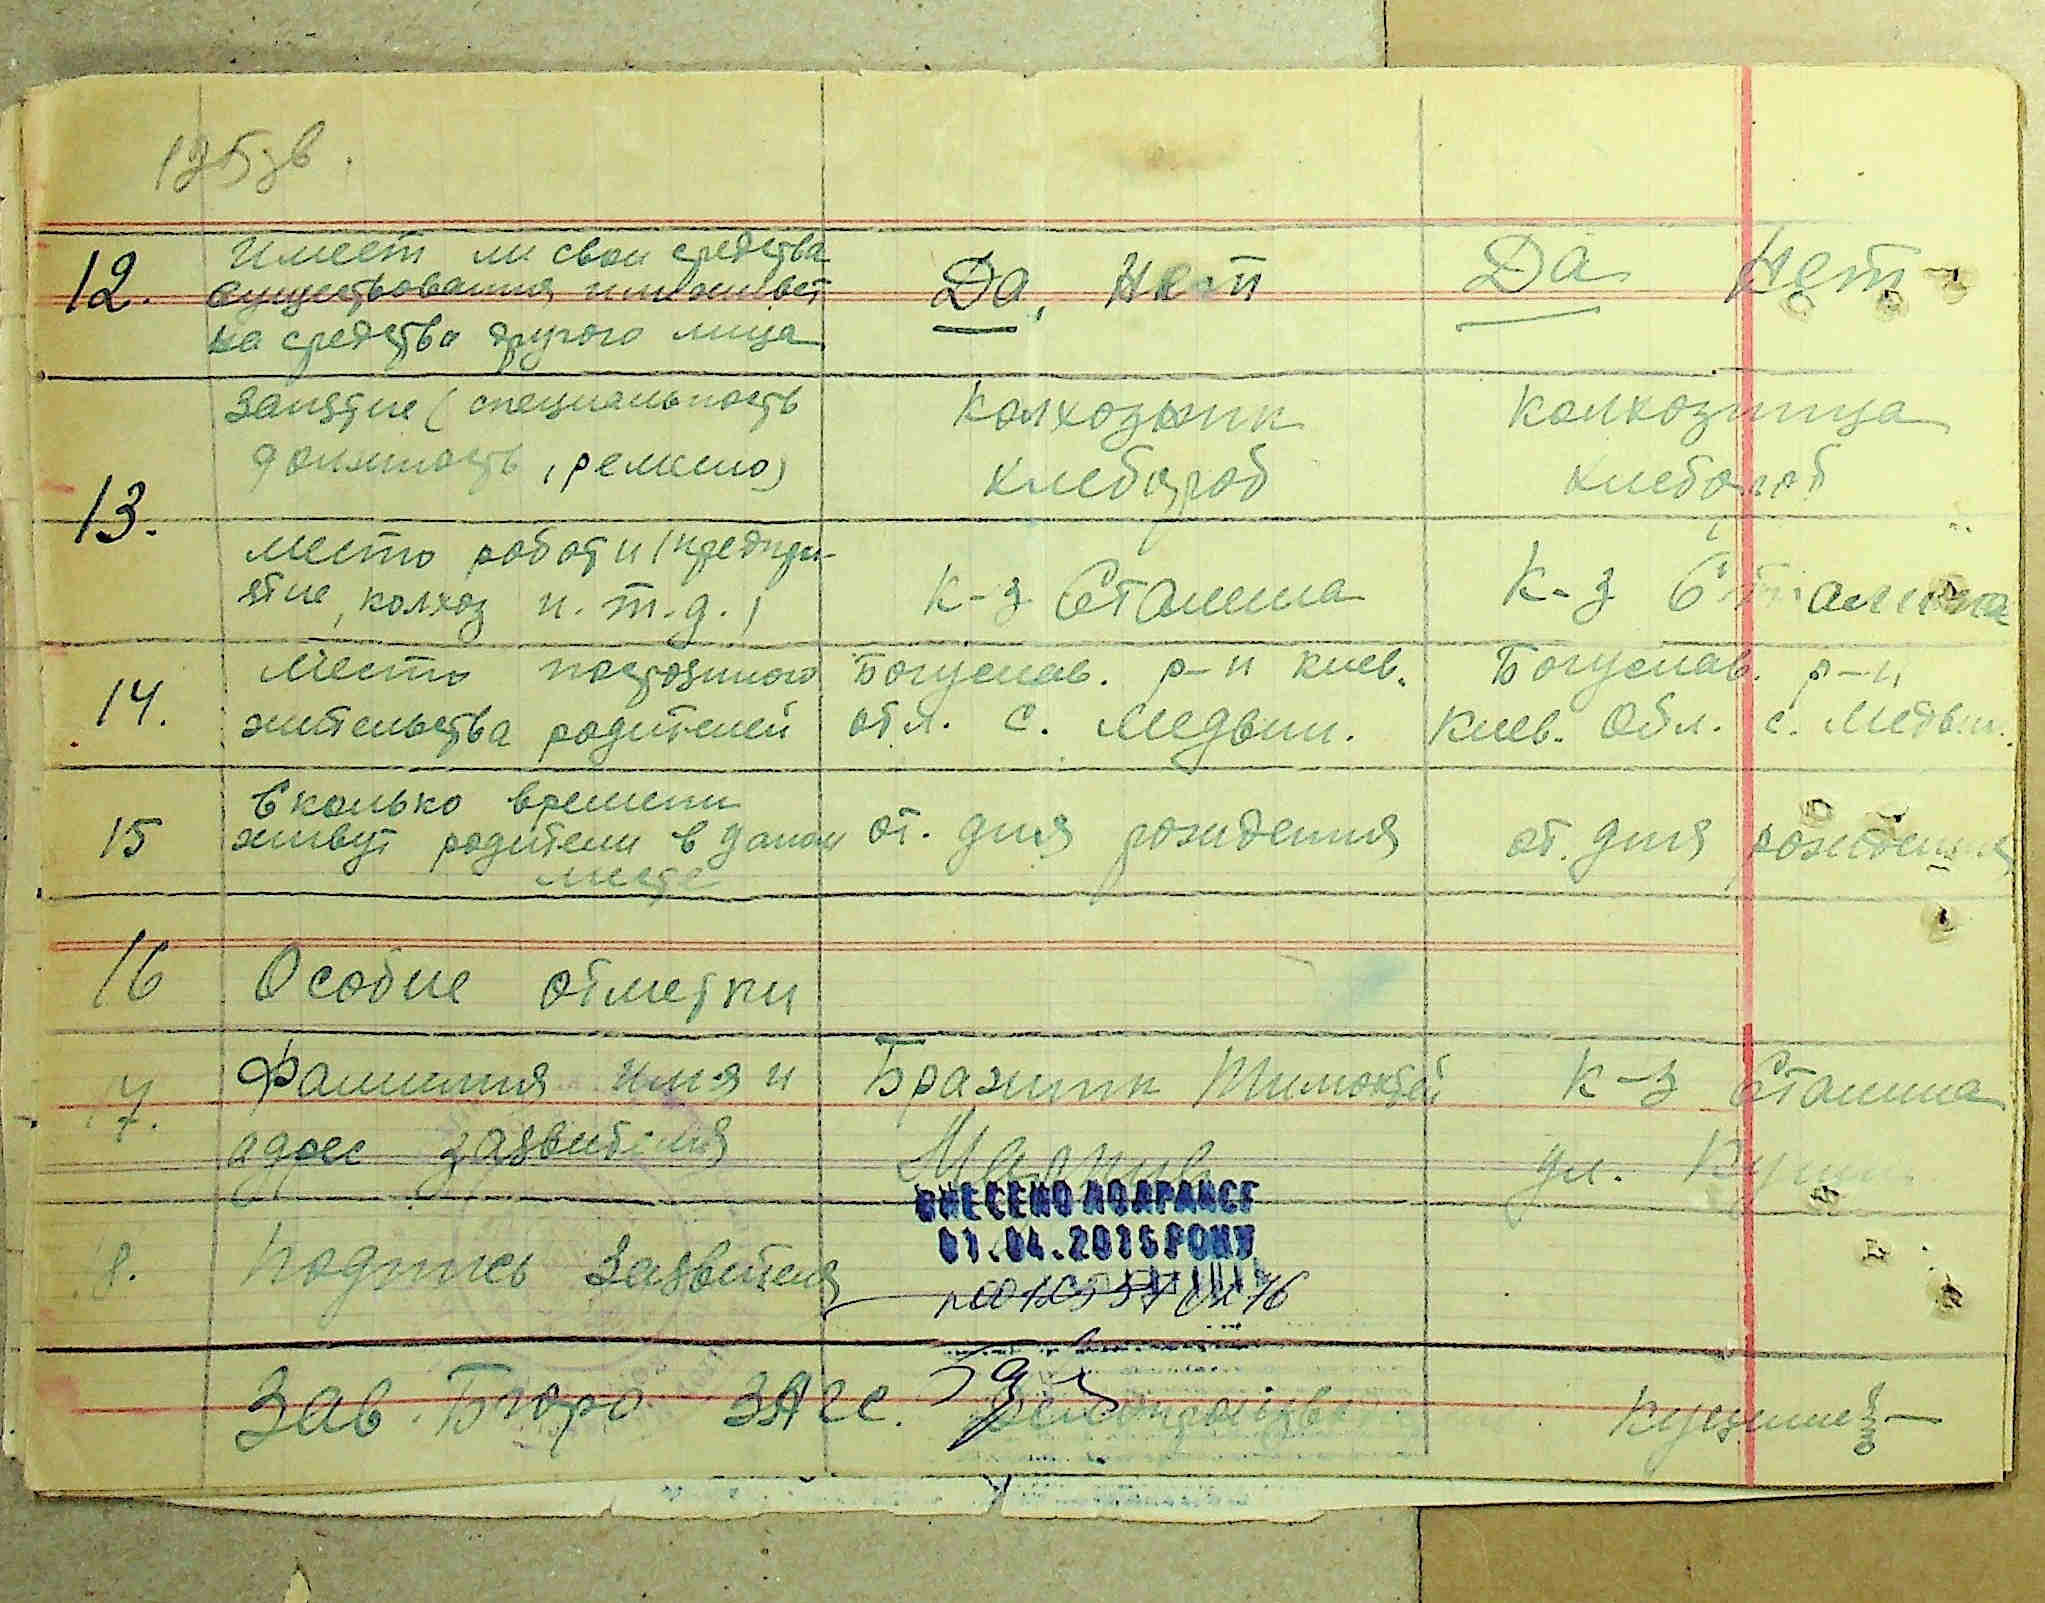 125 зв.
12. Имеет ли свои средства Да, Нет Да Нет
существования или живет
на средства другого лица
13. Занятие (специальность Колхозник Колхозница
должность, ремесло) хлебороб хлебороб
место работи (предпри-
ятие, колхоз и. т. д.) К-з Сталина К-з Сталина
14. Место постоянного Богуслав. р-н Киев. Богуслав. р-н
жительства родителей обл. с. Медвин. Киев. Обл. с. Медвин.
15 Сколько времени
живут родители в даном от. дня рождения от. дня рождения
месте
16 Особие отметки
17. Фамилия имя и Бражник Тимофей К-з Сталина
адрес заявителя ул.
18. Подпись Заявителя
ВНЕСЕНО ДО ДРАЦСГ
01.04.2015 РОКУ
Зав. Бюро ЗАГС.